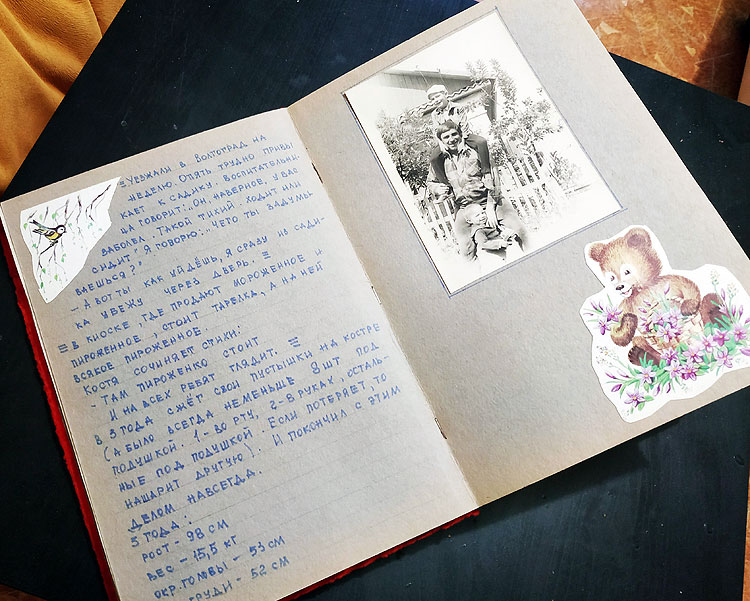 ≡ УЕЗЖАЛИ В ВОЛГОГРАД НА
НЕДЕЛЮ. ОПЯТЬ ТРУДНО ПРИВЫ
КАЕТ К САДИКУ. ВОСПИТАТЕЛЬНИ-
ЦА ГОВОРИТ: „ОН, НАВЕРНОЕ, У ВАС
ЗАБОЛЕЛ. ТАКОЙ ТИХИЙ. ХОДИТ ИЛИ
СИДИТ". Я ГОВОРЮ: „ЧЕГО ТЫ ЗАДУМЫ-
ВАЕШЬСЯ?"
- А ВОТ ТЫ КАК УЙДЁШЬ, Я СРАЗУ ИЗ САДИ-
КА УБЕЖУ ЧЕРЕЗ ДВЕРЬ. ≡
≡ В КИОСКЕ, ГДЕ ПРОДАЮТ МОРОЖЕННОЕ И
ПИРОЖЕННОЕ, СТОИТ ТАРЕЛКА, А НА НЕЙ
ВСЯКОЕ ПИРОЖЕННОЕ.
КОСТЯ СОЧИНЯЕТ СТИХИ:
- ТАМ ПИРОЖЕНКО СТОИТ
И НА ВСЕХ РЕБЯТ ГЛЯДИТ. ≡
В 3 ГОДА СЖЁГ СВОИ ПУСТЫШКИ НА КОСТРЕ
(А БЫЛО ВСЕГДА НЕ МЕНЬШЕ 8 ШТ ПОД
ПОДУШКОЙ. 1 - ВО РТУ, 2 - В РУКАХ, ОСТАЛЬ-
НЫЕ ПОД ПОДУШКОЙ. ЕСЛИ ПОТЕРЯЕТ, ТО
НАШАРИТ ДРУГУЮ). И ПОКОНЧИЛ С ЭТИМ
ДЕЛОМ НАВСЕГДА.
3 ГОДА:
РОСТ - 98 СМ
ВЕС - 15,5 КГ
ОКР. ГОЛОВЫ - 53 СМ
ГРУДИ - 52 СМ